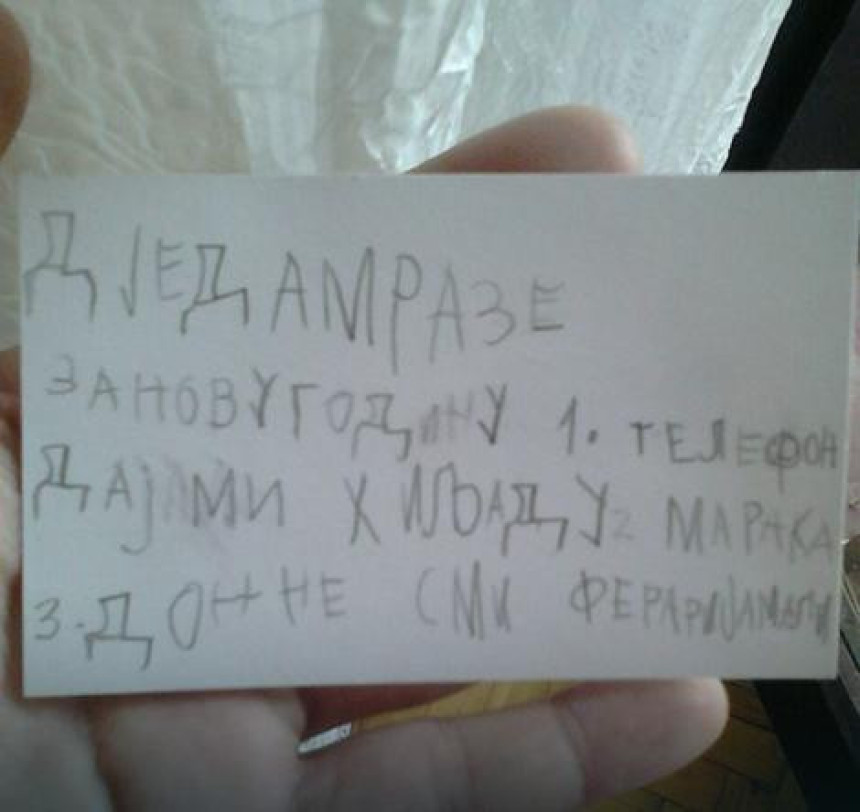 ДЈЕДАМРАЗЕ
ЗА НОВУ ГОДИНУ 1. ТЕЛЕФОН
ДАЈ МИ ХИЉАДУ 2 МАРАКА
3. ДОННЕ СМИ